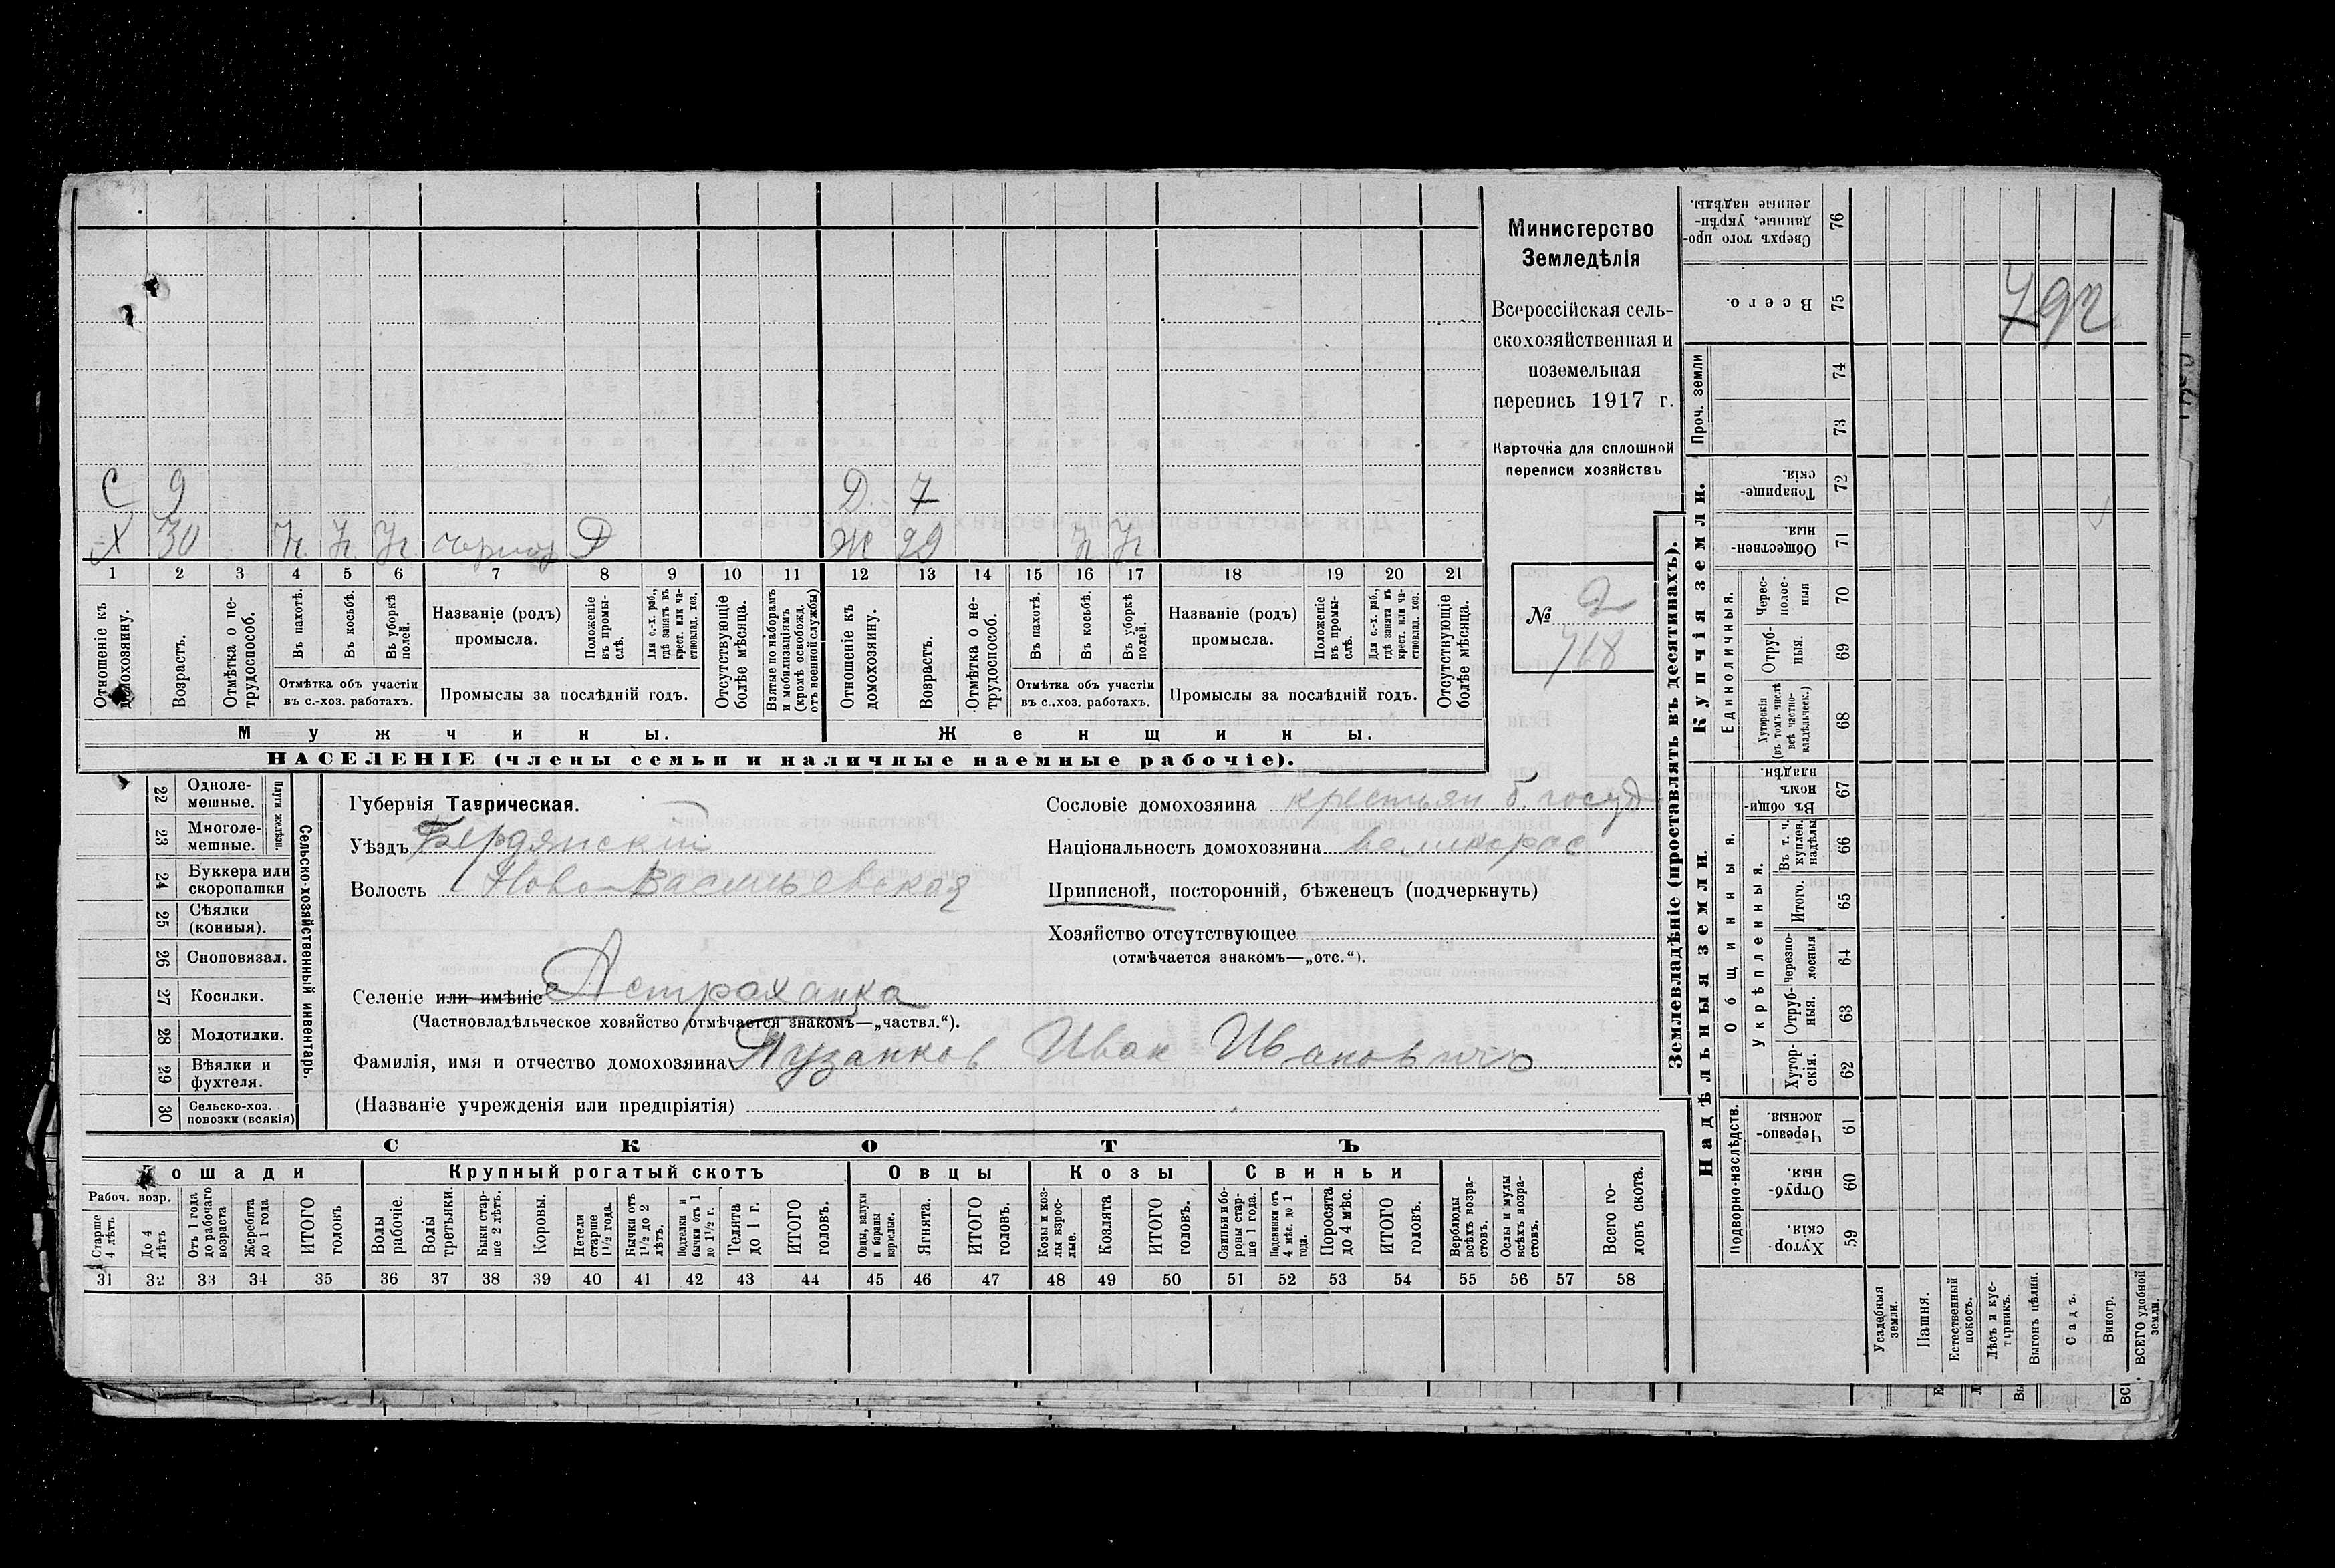 С 9 Д. 7
Х 30 Ч. Ч. Ч. Р Ж 29 Ч Ч.
1 2 3 4 5 6 7 8 9 10 11 12 13 14 15 16 17 18 19 20 21
Отношеніе къ домохозяину.
Возрастъ.
Отмѣтка о не-трудоспособ.
Въ пахотѣ.
Въ косьбѣ.
Въ уборкѣ полей.
Отмѣтка объ участіи
въ с.-хоз. работахъ.
Названіе (родъ)
промысла.
Положеніе въ промы-слѣ.
Для с.-х. раб., гдѣ занятъ въ крест. или ча-стновлад. хоз.
Промыслы за послѣдній годъ.
Отсутствующіе болѣе мѣсяца.
Взятые по наборамъ и мобилизаціямъ (кромѣ освобожд. отъ военной службы)
Отношеніе къ домохозяину.
Возрастъ.
Отмѣтка о не-трудоспособ.
Въ пахотѣ.
Въ косьбѣ.
Въ уборкѣ полей.
Отмѣтка объ участіи
въ с.-хоз. работахъ.
Названіе (родъ)
промысла.
Положеніе въ промы-слѣ.
Для с.-х. раб., гдѣ занятъ въ крест. или ча-стновлад. хоз.
Промыслы за послѣдній годъ.
Отсутствующіе болѣе мѣсяца.
Мужчины.
Женщины.
НАСЕЛЕНІЕ (члены семьи и наличные наемные рабочіе).
Министерство
Земледѣлія
Всероссійская сель-
скохозяйственная и
поземельная
перепись 1917 г.
Карточка для сплошной
переписи хозяйствъ
№ 2
718
22 Одноле-мешные.
23 Многоле-мешные.
Плуги желѣзн.
24 Буккера или скоропашки
25 Сѣялки (конныя).
26 Сноповязал.
27 Косилки.
28 Молотилки.
29 Вѣялки и фухтеля.
30 Сельско-хоз. повозки (всякія)
Сельско-хозяйственный инвентарь.
Губернія Таврическая.
Уѣздъ Бердянскій
Волость Ново-Васильевская
Селеніе или имѣніе Астраханка
(Частновладѣльческое хозяйство отмѣчается знакомъ—„частвл.“).
Фамилія, имя и отчество домохозяина Пузанков Иван Ивановичъ
(Названіе учрежденія или предпріятія)
Сословіе домохозяина крестьян б. госуд
Національность домохозяина великорос
Приписной, посторонній, бѣженец (подчеркнуть)
Хозяйство отсутствующее
(отмѣчается знакомъ—„отс.“).
СКОТЪ
Лошади
Крупный рогатый скотъ
Овцы
Козы
Свиньи
Рабоч. возр.
Старше 4 лѣтъ
До 4 лѣтъ
Отъ 1 года до рабочаго возраста
Жеребята до 1 года
ИТОГО головъ
Волы рабочіе.
Волы третьяки.
Быки стар-ше 2 лѣтъ.
Коровы.
Нетели старше 1½ года.
Бычки отъ 1½ до 2 лѣтъ.
Подтелки и бычки отъ 1 до 1½ г.
Телята до 1 г.
ИТОГО головъ.
Овцы, валухи и бараны взрослые.
Ягнята.
ИТОГО головъ.
Козы и коз-лы взрос-лые.
Козлята
ИТОГО головъ.
Свиньи и бо-ровы стар-ше 1 года.
Подсвинки отъ 4 мѣс. до 1 года.
Поросята до 4 мѣс.
ИТОГО головъ.
Верблюды всѣхъ возра-стовъ.
Ослы и мулы всѣхъ возра-стовъ.
Всего го-ловъ скота.
31 32 33 34 35 36 37 38 39 40 41 42 43 44 45 46 47 48 49 50 51 52 53 54 55 56 57 58
Землевладѣніе (проставлять въ десятинахъ).
Сверхъ того про-данные, укрѣп-ленные надѣлы. 76
Всего. 75
792
Проч. земли
74
73
Купчія земли.
Товарище-скія 72
Обществен-ныя. 71
Единоличныя.
Черес-полос-ныя 70
Отруб-ныя. 69
Хуторскія (въ томъ числѣ всѣ частно-владѣльческ.) 68
Надѣльныя земли.
Общинныя.
Въ общи-номъ владѣн. 67
Укрѣпленныя.
Въ т. ч. куплен. надѣлы 66
Итого. 65
Черезпо-лосныя 64
Отруб-ныя. 63
Хутор-скія. 62
Подворно-наслѣдств.
Черезпо-лосныя. 61
Отруб-ныя. 60
Хутор-скія. 59
Усадебныя земли.
Пашня.
Естественный покосъ.
Лѣсъ и кус-тарникъ.
Выгонъ цѣлин.
Садъ.
Виногр.
ВСЕГО удобной земли.